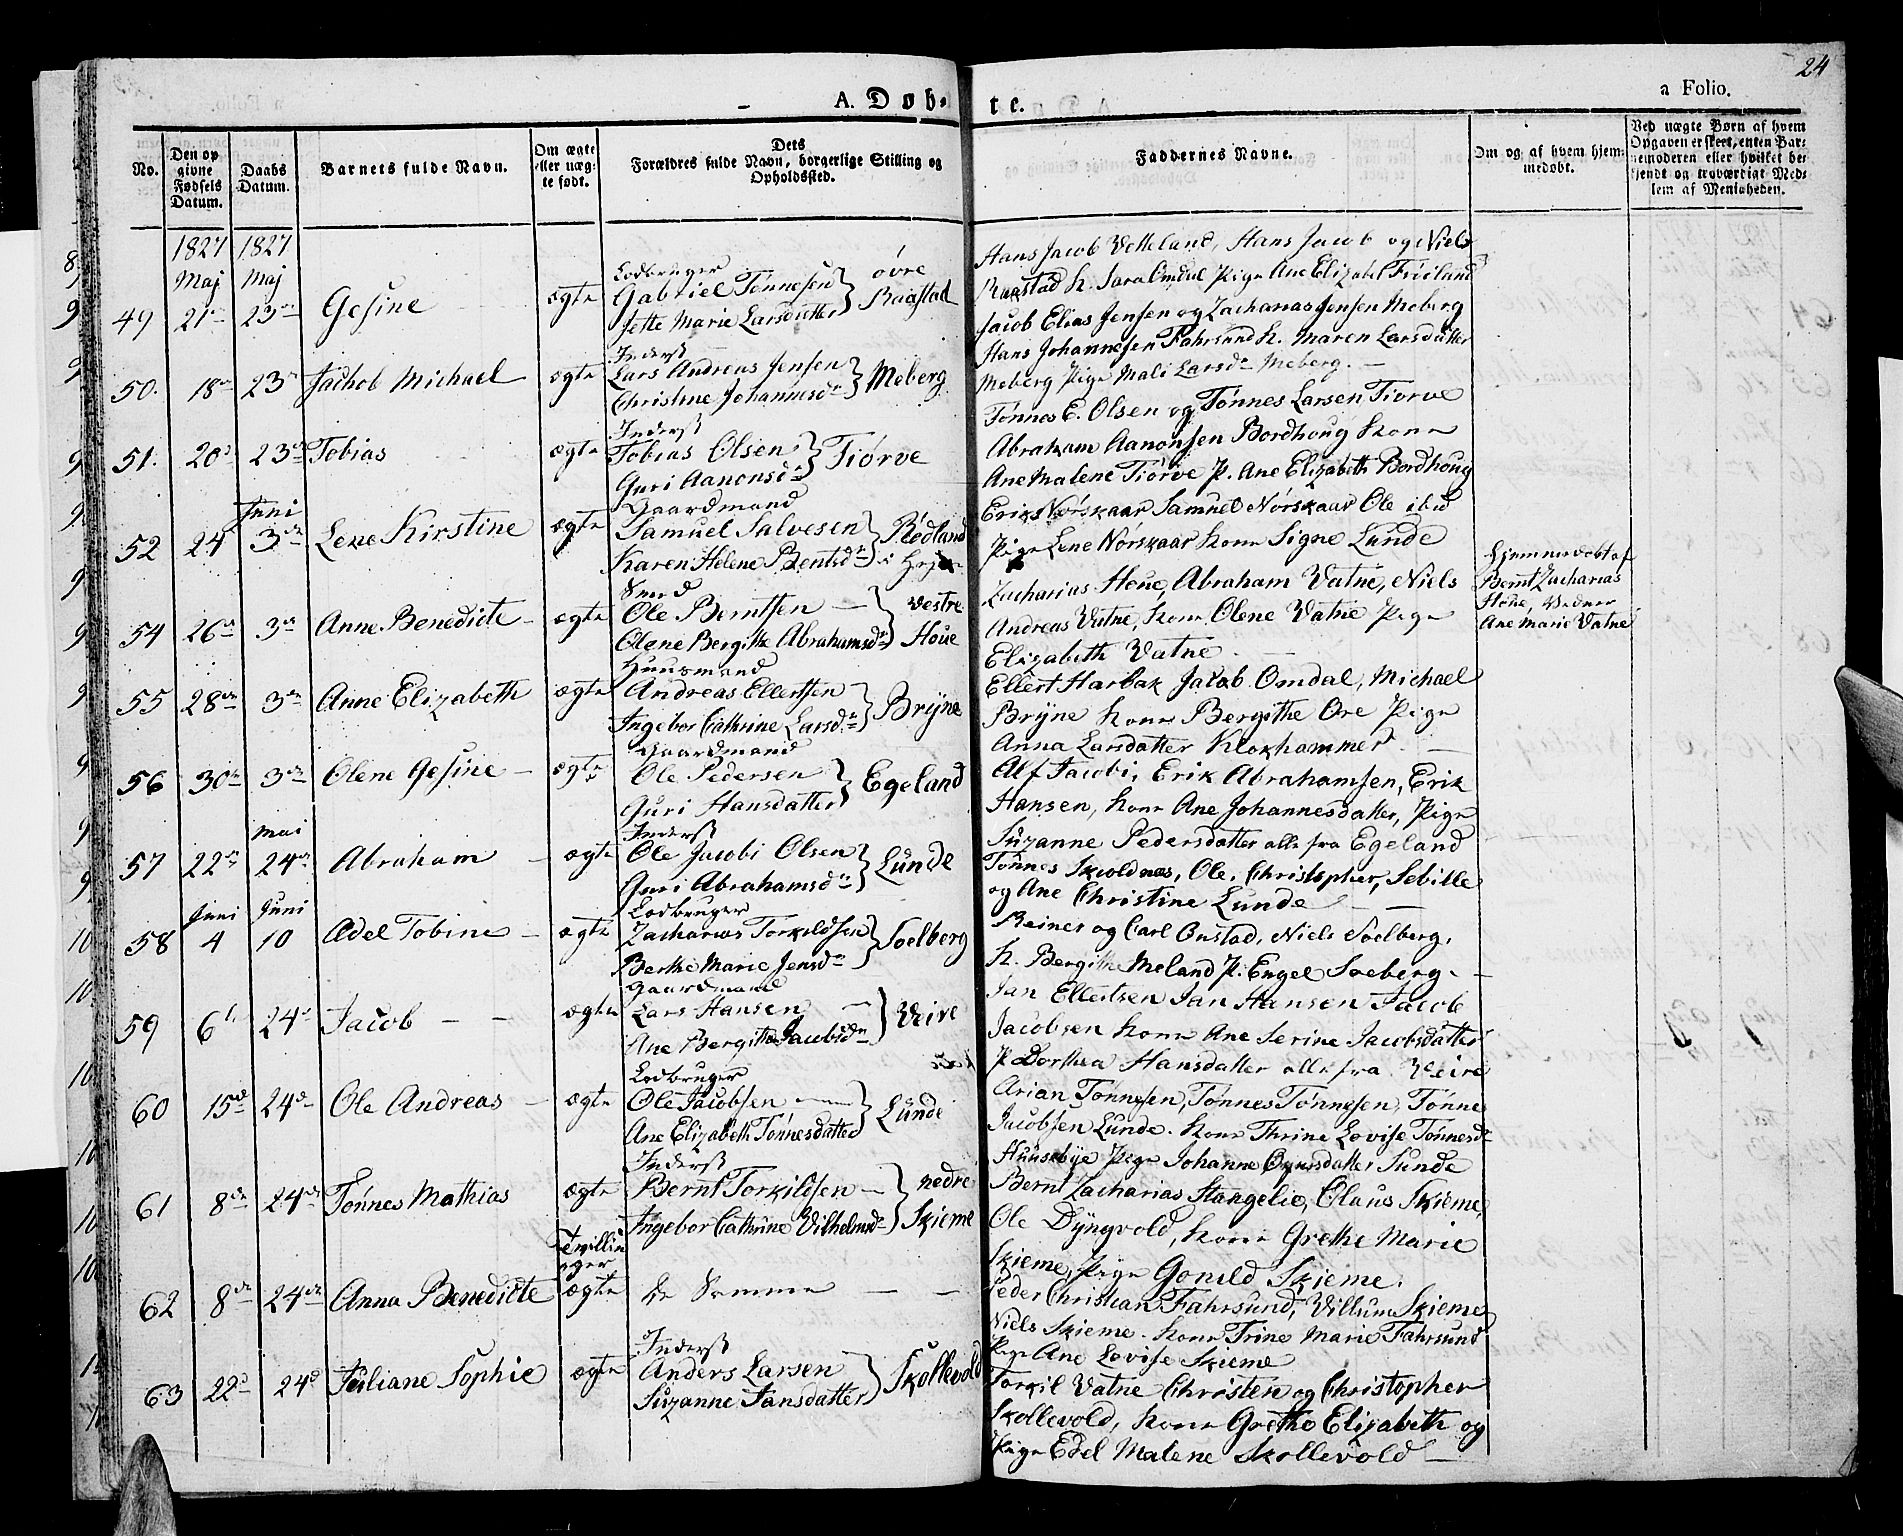 24
A. Døb-
te.
a Folio.
No.
Den op
givne
Fødsels
Datum.
Daabs
Datum.
Barnets fulde Navn.
Om ægte
eller uæg-
te født.
Dets
Forældres fulde Navn, borgerlige Stilling og
Opholdssted.
Faddernes Navne.
Om og af hvem hjem-
medøbt.
Ved uægte Børn af hvem
Opgaven er skeet, enten Bar-
nemoderen eller hvilket be-
kjendt og troværdigt Med-
lem af Menigheden.
1827 1827
Maj Maj
49 21 23 Gesine ægte
Lodbruger
Gabriel Tønnesen
Jette Marie Larsdatter
øvre
Raastad
Hans Jacob Vetteland, Hans Jacob og Niels
Raastad K. Sara Omdal Pige Ane Elizabet Friiland
50. 18 23 Jachob Michael ægte
Inderst
Lars Andreas Jensen
Christine Johannesd
Meberg
Jacob Elias Jensen og Zacharias Jensen Meberg
Hans Johannesen Fahrsund K. Maren Larsdatter
Meberg Pige Mali Larsd Meberg.
51. 20 23 Tobias ægte
Inderst
Tobias Olsen
Guri Aanonsd
Tiørve
Tønnes E. Olsen og Tønnes Larsen Tiørve
Abraham Aanonsen Bordhoug Kone
Ane Malene Tiørve P. Ane Elizabeth Bordhoug
Juni
52 24 3 Lene Kirstine ægte
Gaardmand
Samuel Salvesen
Karen Helene Bentsd
Rødland
Erik Nørskaar Samuel Nørskaar Ole ibid
Pige Lene Nørskaar Kone Signe Lunde
54 26 3 Anne Benedicte ægte
Smed
Ole Berntsen
Olene Bergitte Abrahamsd
Vestre
Houe
Zacharias Houe, Abraham Vatne, Niels
Andreas Vatne, Kone Olene Vatne Pige
Elizabeth Vatne
Hjemmedøbt af
Bernt Zacharias
Houe,
Ane Marie Vatne
55 28 3 Anne Elizabeth ægte
Huusmand
Andreas Ellertsen
Ingebor Cathrine Larsd.
Brÿne
Ellert Harbak Jacob Omdal, Michael
Brÿne Kone Bergithe Ore Pige
Anna Larsdatter Klokhammer.
56 30 3 Olene Gesine ægte
Gaardmand
Ole Pedersen
Guri Hansdatter
Egeland
Alf Jacobi, Erik Abrahamsen, Erik
Hansen, Kone Ane Johannesdatter, Pige
Suzanne Pedersdatter alle fra Egeland
Mai
57 22 24 Abraham ægte
Inderst
Ole Jacobi Olsen
Guri Abrahamsd
Lunde
Tønnes Skoldnes, Ole, Christopher, Sebille
og Ane Christine Lunde
Juni Juni
58 4 10 Ædel Tobine ægte
Lodbruger
Zacharias Torkildsen
Berthe Marie Jensd
Soelberg
Reiner og Carl Onstad, Niels Soelberg,
K. Bergitte Meland P. Engel Soeberg
59 6 24 Jacob ægte
Gaardmand
Lars Hansen
Ane Bergitte Jacobsd
Veire
Jan Ellertsen Jan Hansen Jacob
Jacobsen Kone Ane Serine Jacobsdatter
P. Dorthea Hansdatter alle fra Veire
60 15 24 Ole Andreas ægte
Lodbruger
Ole Jacobsen
Ane Elizabeth Tønnesdatter
Lunde
Arian Tønnesen, Tønnes Tønnesen, Tønne
Jacobsen Lunde. Kone Thrine Lovise Tønnesd
Huusebÿe Pige Johanne Lunde
61 8 24 Tønnes Mathias ægte
Inderst
Bernt Torkildsen
Ingebor Cathrine Vilhelmsd
nedre
Skieme
Bernt Zacharias Stangelie, Olaus Skieme,
Ole Dÿngvold, Kone Grethe Marie
Skieme, Pige Gonild Skieme.
Tvillin
ger
62 8 24 Anna Benedicte ægte
De Samme
Peder Christian Fahrsund, Villum Skieme
Niels Skieme. Kone Trine Marie Fahrsund
Pige Ane Lovise Skieme
63 22 24 Juliane Sophie ægte
Inderst
Anders Larsen
Suzanne Jansdatter
Skollevold
Torkil Vatne Christen og Christopher
Skollevold, Kone Grethe Elizabeth og
Pige Edel Malene Skollevold